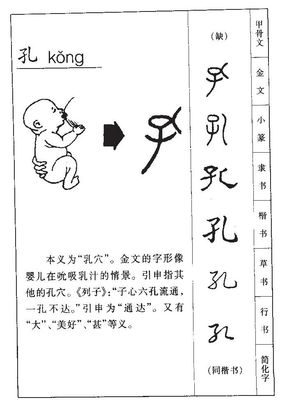 孔 kǒng
本义为“乳穴”。金文的字形像
婴儿在吮吸乳汁的情景。引申指其
他的孔穴。《列子》:“子心六孔流通,
一孔不达。”引申为“通达”。又有
“大”、“美好”、“甚”等义。
(缺)
孔
孔
孔
孔
孔
孔
(同楷书)
甲骨文
金文
小篆
隶书
楷书
草书
行书
简化字